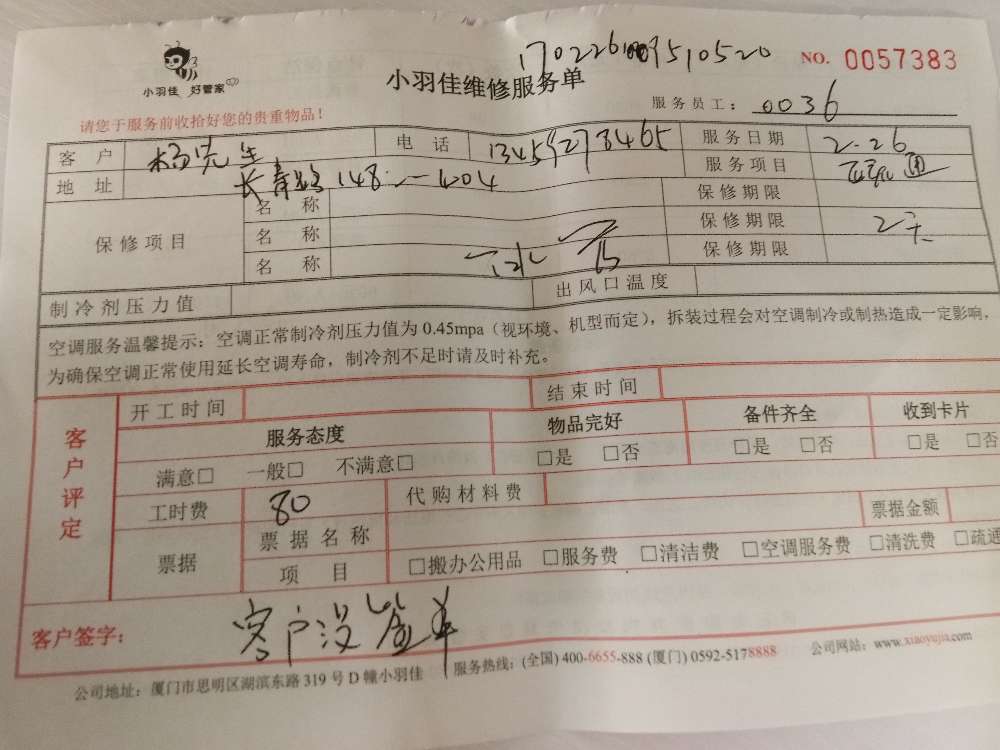 小羽佳 好管家
小羽佳维修服务单
NO. 0057383
请您于服务前收拾好您的贵重物品！
服务员工： 0036
客户 杨先生 电话 服务日期 2.26
地址 长青路148 404 服务项目
保修项目 名称 保修期限
名称 保修期限 2天
名称 保修期限
制冷剂压力值 出风口温度
空调服务温馨提示：空调正常制冷剂压力值为 0.45mpa（视环境、机型而定），拆装过程会对空调制冷或制热造成一定影响，
为确保空调正常使用延长空调寿命，制冷剂不足时请及时补充。
客户评定
开工时间 结束时间
服务态度 物品完好 备件齐全 收到卡片
满意□ 一般□ 不满意□ □是 □否 □是 □否 □是 □否
工时费 80 代购材料费
票据 票据名称 票据金额
项目 □搬办公用品 □服务费 □清洁费 □空调服务费 □清洗费 □疏通
客户签字： 客户没签单
公司地址：厦门市思明区湖滨东路 319 号 D 幢小羽佳 服务热线：(全国) 400-6655-888 (厦门) 0592-5178888 公司网站：www.xiaoyujia.com